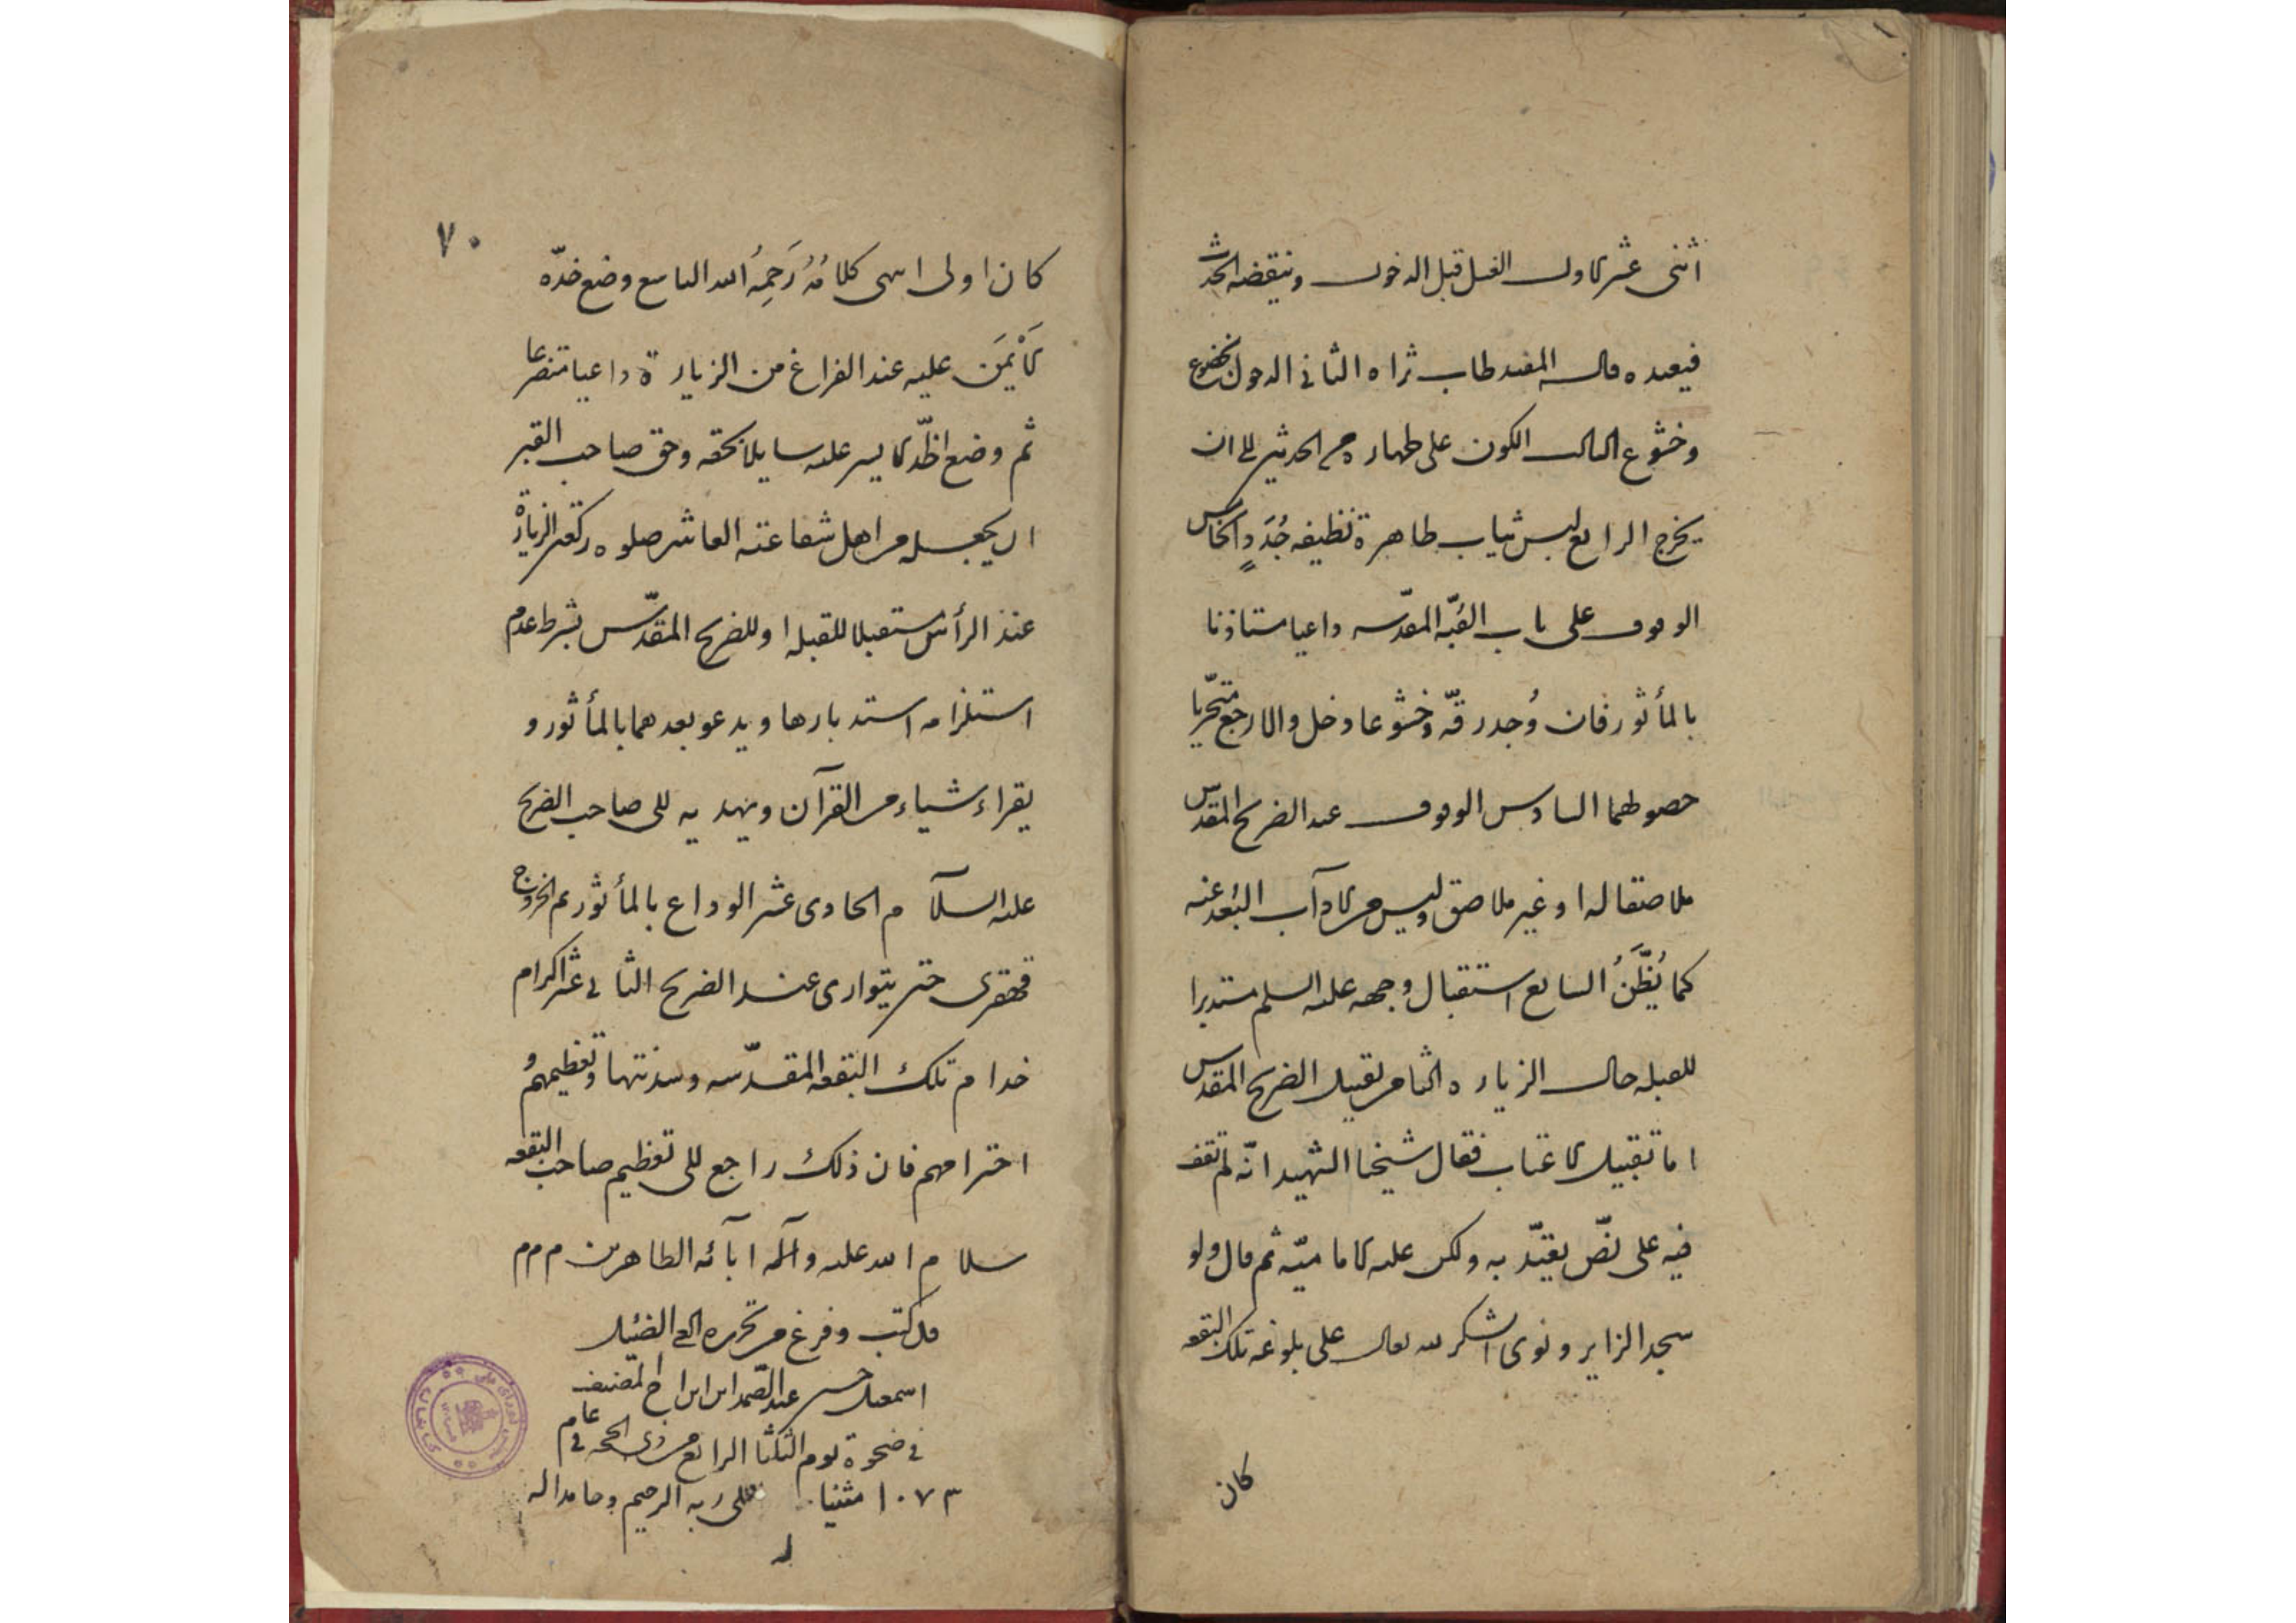 اثنى عشر الاول الغسل قبل الدخول وينقضه الحدث
فيعيده قاله المفيد طاب ثراه الثاني الدخول بخضوع
وخشوع الثالث الكون على طهارة من الحدثين الى ان
يخرج الرابع لبس ثياب طاهرة نظيفه جُدَدٍ الخامس
الوقوف على باب القبّه المقدّسه داعيا مستاذنا
بالمأثور فان وُجد رقّه وخشوعا دخل والا رجع متحّريا
حصولهما السادس الوقوف عند الضريح المقدس
ملاصقا له او غير ملاصق وليس من الآداب البُعد عنه
كما يُظَّنُ السابع استقبال وجهه عليه السلم مستدبرا
للقبله حال الزياره الثامن تقبيل الضريح المقدس
اما تقبيل الاعتاب فقال شيخنا الشهيد انّه لم تقف
فيه على نصّ يعتدّ به ولكن عليه الاماميّه ثم قال ولو
سجد الزاير ونوى الشكر لله تعالى على بلوغه تلك البقعه
كان
٧٠
كان اولى انتهى كلامُهُ رَحِمهُ الله التاسع وضع خدّه
الأيْمَن عليه عند الفراغ من الزيارة داعيا متضرعا
ثم وضع الخدّ الايسر عليه سايلا بحقه وحق صاحب القبر
ان يجعله من اهل شفاعته العاشر صلوه ركعتى الزيارة
عند الرأس مستقبلا للقبله او للضريح المقدّس بشرط عدم
استلزامه استدبارها ويدعو بعدهما بالمأثور و
يقراء شياء من القرآن ويهديه الى صاحب الضريح
عليه السلآم الحادى عشر الوداع بالمأثور ثم الخروج
قهقرى حتى يتوارى عنه الضريح الثاني عشر اكرام
خدام تلك البقعه المقدّسه وسدنتها وتعظيمهم و
احترامهم فان ذلك راجع الى تعظيم صاحب البقعه
سلام الله عليه وآله آبآئه الطاهرين م م م
قد كتب وفرغ من تحريره الضئيل
اسمعيل حسين عبد الصّمد ابن ابن اخ المصّنف
في ضحوة يوم الثلثا الرابع من ذى الحجه في عام
١٠٧٣ مثنيا على ربه الرحيم وحامدا له